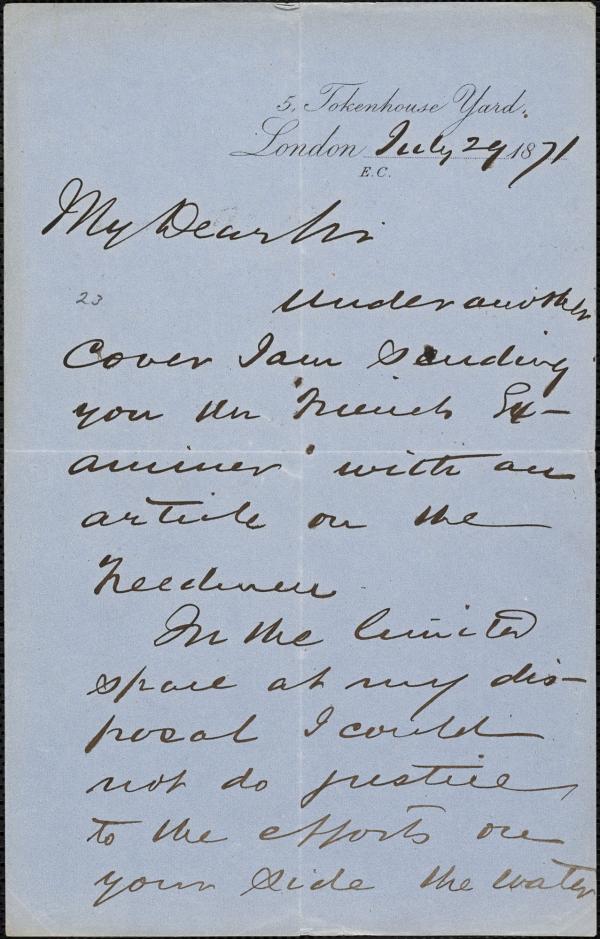 5, Tokenhouse Yard.
London July 29 1871
E.C.
My Dear Sir
23
Under another
Cover I am sending
you the "Friends Ex-
aminer" with an
article on the
Freedmen
In the limited
space at my dis-
posal I could
not do justice
to the efforts on
your side the water